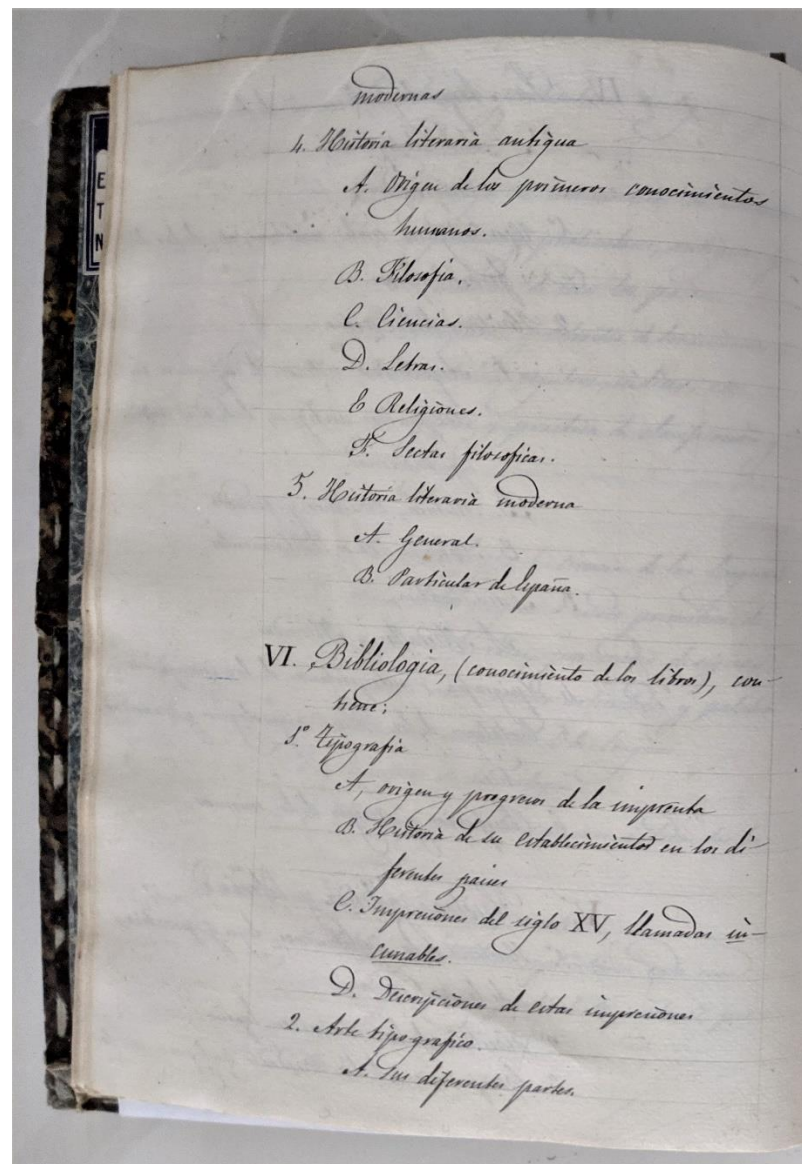 modernas
4. Historia literaria antigua
A. Origen de los primeros conocimientos
humanos.
B. Filosofia.
C. Ciencias.
D. Letras.
E Religiones.
F. Sectas filosoficas.
5. Historia literaria moderna
A. General.
B. Particular de España.
VI. Bibliologia, (conocimiento de los libros), con-
tiene:
1º Tipografia
A, origen y progresos de la imprenta
B. Historia de su establecimiento en los di-
ferentes paises
C. Impresiones del siglo XV, llamadas in-
cunables.
D. Descripciones de estas impresiones
2. Arte tipografico.
A. Sus diferentes partes.
E
T
N